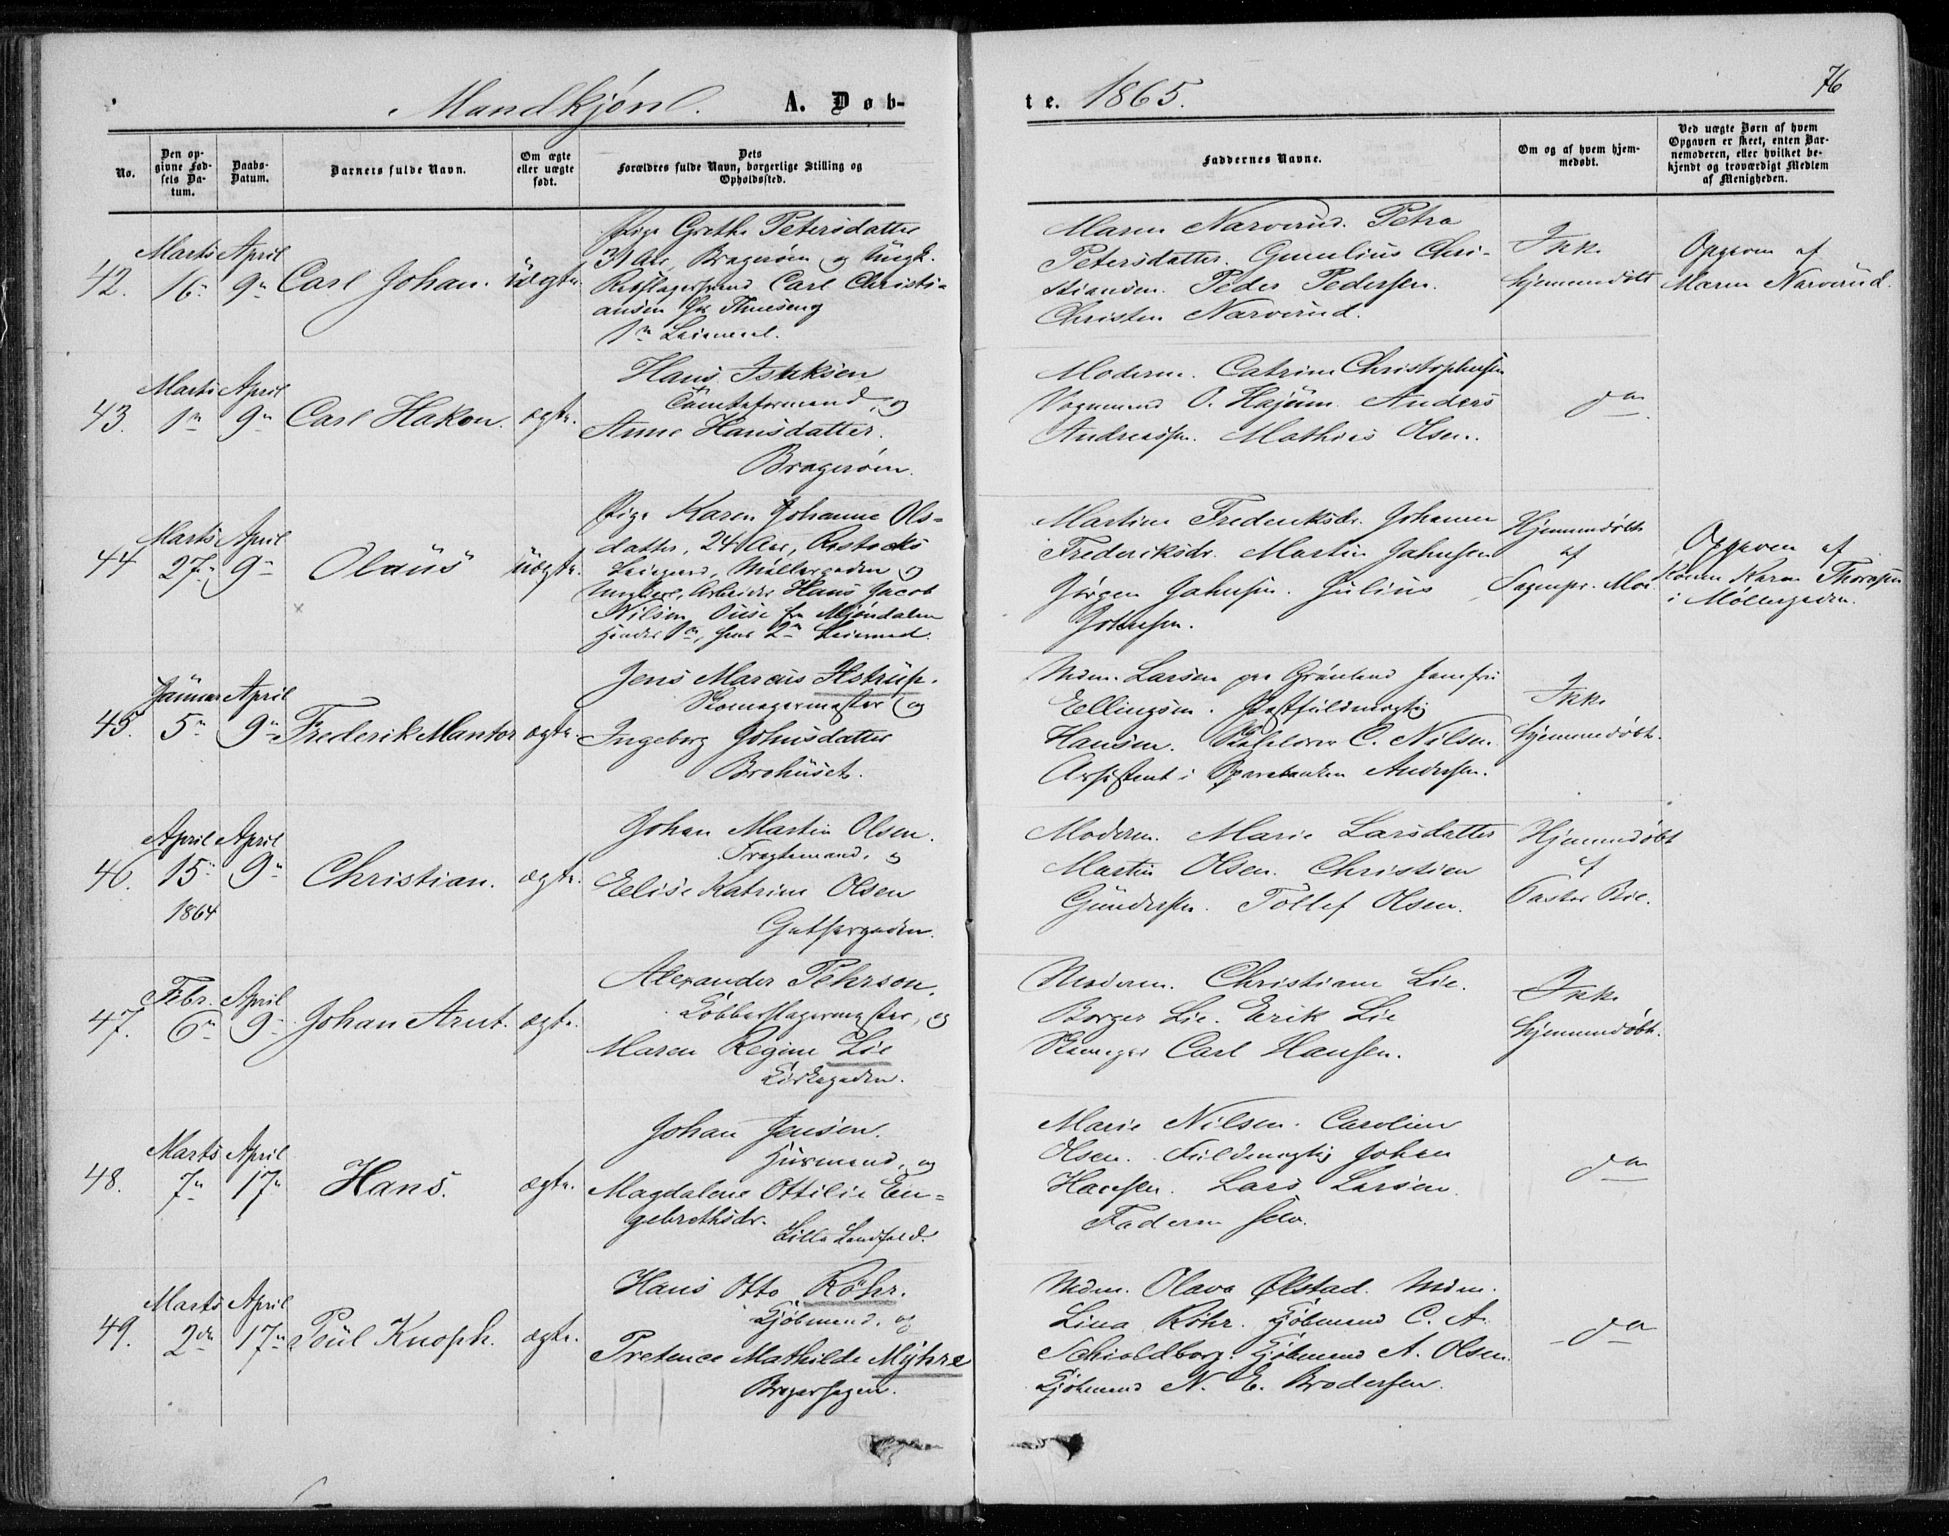 Mandkjøn. A. Døb-
te. 1865.
76
No.
Den op-
givne Fød-
sels Da-
tum.
Daabs-
Datum.
Barnets fulde Navn.
Om ægte
eller uægte
født.
Dets
Forældres fulde Navn, borgerlige Stilling og
Opholdssted.
Faddernes Navne.
Om og af hvem hjem-
medøbt.
Ved uægte Børn af hvem
Opgaven er skeet, enten Bar-
nemoderen, eller hvilket be-
kjendt og troværdigt Medlem
af Menigheden.
42.
Marts
16
April
9
Carl Johan.
uægte
Pige Grethe Petersdatter
31 Aar, Bragerøen og Ungk.
Carl Christi-
ansen
1 Leiermaal.
Maren Narverud. Petra
Petersdatter. Gunelius Chri-
stiansen. Peder Pedersen.
Christen Narverud.
Ikke
hjemmedøbt
Opgiven af
Maren Narverud.
43.
Marts
1
April
9
Carl Hakon.
ægte.
Hans Isaksen
Tomteformand, og
Anne Hansdatter.
Bragerøen.
Moderen. Catrine Christophersen
Vognmand O. Anders
Andreassen. Mathias Olsen.
do
44
Marts
27
April
9
Olaus
uægte.
Pige Karen Johanne Ols-
datter, 24 Aar,
Møllergaden og
Ungkarl, Arbeider Hans Jacob
Nilsen fra Mjøndalen
Hendes 1, hans 2 Leiermaal.
Martine Frederiksdr. Johanne
Frederiksdr. Martin Jahnsen
Jørgen Jahnsen. Julius
Johnsen.
Hjemmedøbt
af
Sognepr. Moe
Opgiven af
Konen Karen Thoresen
i Møllergaden.
45.
Januar
5
April
9
Frederik Mantor
ægte.
Jens Marcus Astrup.
Skomagermester og
Ingeborg Johnsdatter
Brohuset.
Mdm. Larsen paa Grønland Jomfru
Ellingsen. Postfuldmægtig
Hansen. C. Nilsen.
Assistent i Sparebanken Andersen.
Ikke
hjemmedøbt.
46.
April
15
1864
April
9
Christian.
ægte.
Johan Martin Olsen.
Fragtemand, og
Eelise Katrine Olsen
Moderen. Marie Larsdatter
Martin Olsen. Christian
Gundersen. Tollef Olsen.
Hjemmedøbt
af
Pastor Bie.
47.
Febr.
6
April
9
Johan Arnt.
ægte.
Alexander Pehrson.
Kobberslagermester, og
Maren Regine Lie
Kirkegaden.
Moderen. Christiane Lie.
Borger Lie. Erik Lie
Skomager Carl Hansen.
Ikke
hjemmedøbt.
48.
Marts
7
April
17
Hans.
ægte.
Johan Jensen.
Huusmand, og
Magdalene Ottilie En-
gebrethsdr.
Lille Landfald.
Marie Nilsen. Caroline
Olsen. Fuldmægtig Johan
Hansen. Lars Larsen.
Faderen selv.
do
49.
Marts
2
April
17
Poul Knoph.
ægte.
Hans Otto Röhr.
Kjøbmand, og
Pretence Mathilde Myhre
Mdm. Olava Ølstad. Mdm.
Lina Röhr. Kjøbmand C. A.
Schioldborg. Kjøbmand A. Olsen.
Kjøbmand N. E. Brodersen.
do